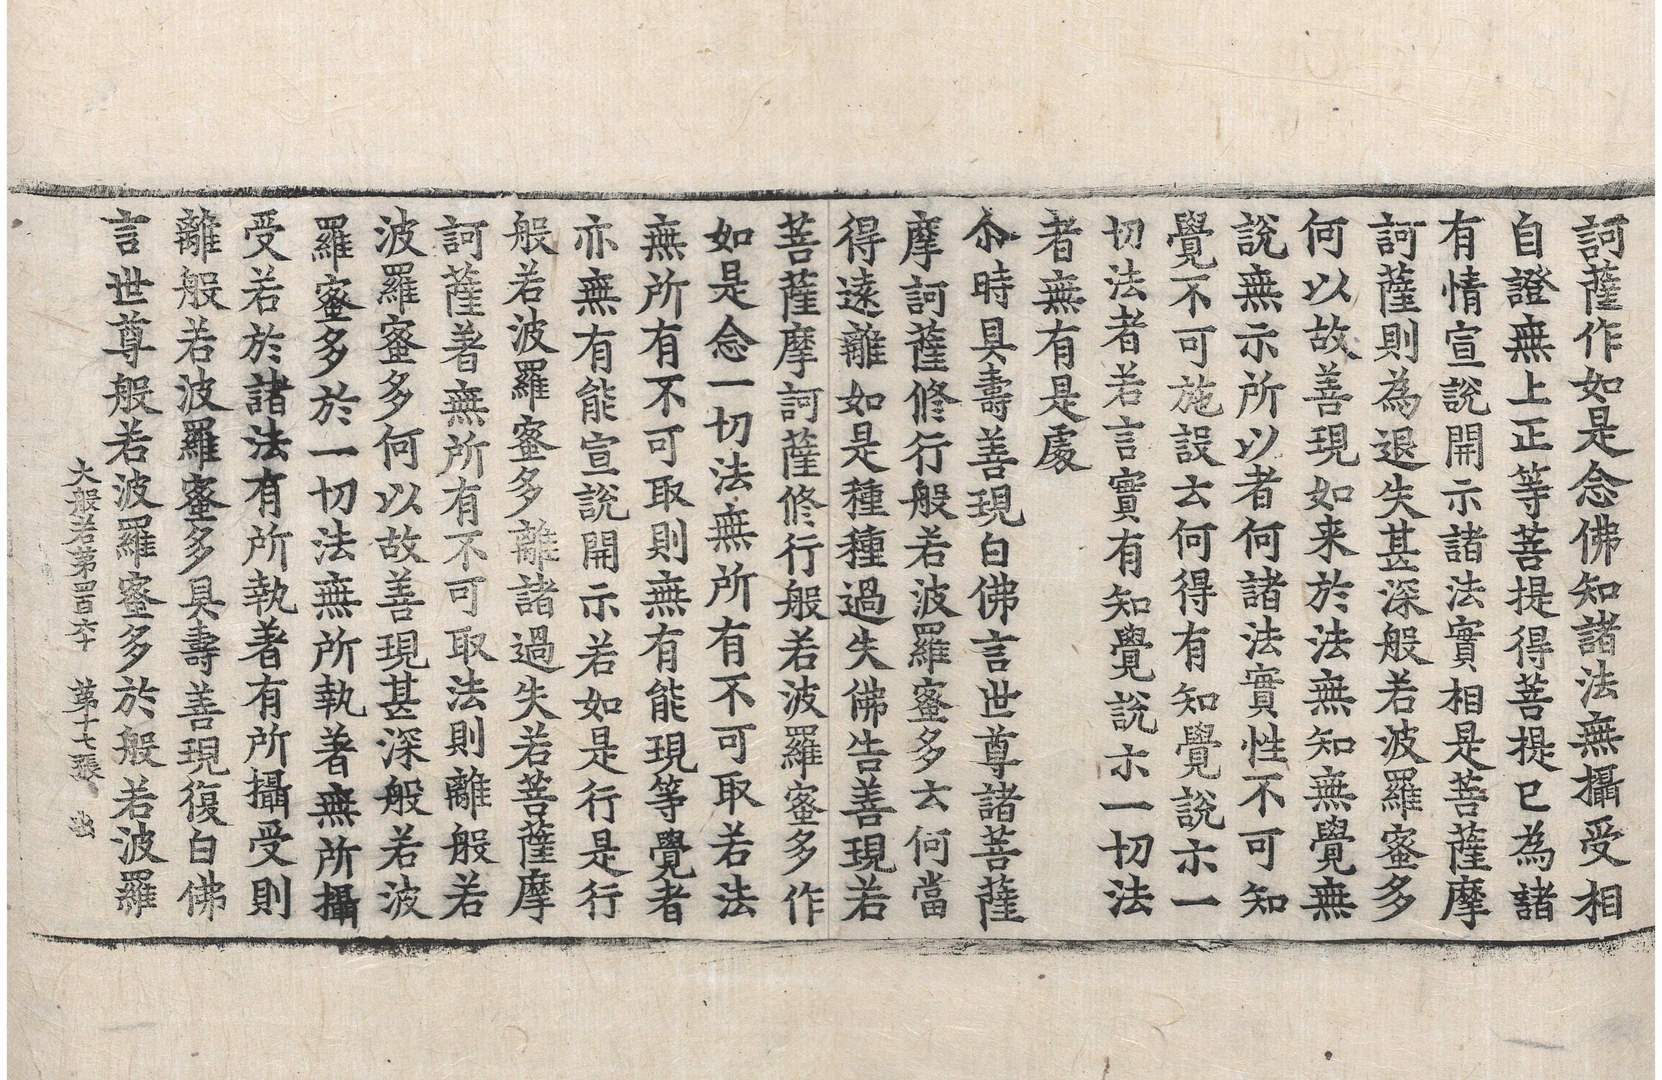 訶薩作如是念佛知諸法無攝受相
自證無上正等菩提得菩提已為諸
有情宣說開示諸法實相是菩薩摩
訶薩則為退失甚深般若波羅蜜多
何以故善現如来於法無知無覺無
說無示所以者何諸法實性不可知
覺不可施設云何得有知覺說示一
切法者若言實有知覺說示一切法
者無有是處
尒時具壽善現白佛言世尊諸菩薩
摩訶薩修行般若波羅蜜多云何當
得遠離如是種種過失佛告善現若
菩薩摩訶薩修行般若波羅蜜多作
如是念一切法無所有不可取若法
無所有不可取則無有能現等覺者
亦無有能宣說開示若如是行是行
般若波羅蜜多離諸過失若菩薩摩
訶薩著無所有不可取法則離般若
波羅蜜多何以故善現甚深般若波
羅蜜多於一切法無所執著無所攝
受若於諸法有所執著有所攝受則
離般若波羅蜜多具壽善現復白佛
言世尊般若波羅蜜多於般若波羅
大般若第四百六十 第十七張